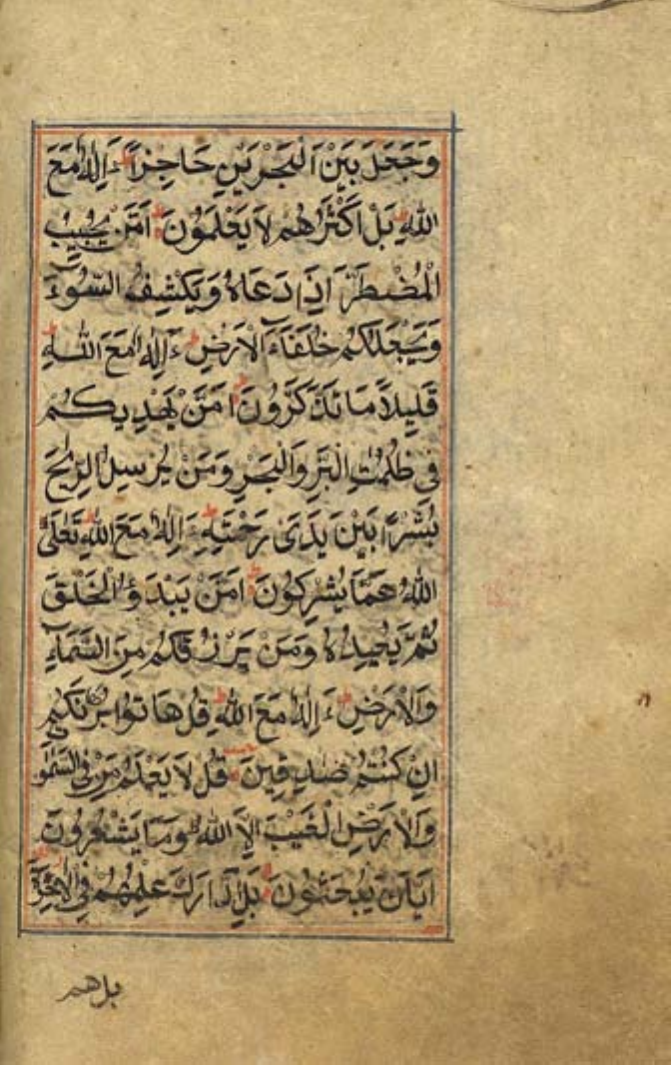 وَجَعَلَ بَيْنَ الْبَحْرَيْنِ حَاجِزًا ءَاِلٰهٌ مَعَ
اللّٰهِ بَلْ اَكْثَرُهُمْ لَا يَعْلَمُونَ اَمَّنْ يُجِيبُ
الْمُضْطَرَّ اِذَا دَعَاهُ وَيَكْشِفُ السُّوٓءَ
وَيَجْعَلُكُمْ خُلَفَآءَ الْاَرْضِ ءَاِلٰهٌ مَعَ اللّٰهِ
قَلِيلًا مَا تَذَكَّرُونَ اَمَّنْ يَهْدِيكُمْ
فِي ظُلُمٰتِ الْبَرِّ وَالْبَحْرِ وَمَنْ يُرْسِلُ الرِّيٰحَ
بُشْرًا بَيْنَ يَدَيْ رَحْمَتِهِ ءَاِلٰهٌ مَعَ اللّٰهِ تَعٰلَى
اللّٰهُ عَمَّا يُشْرِكُونَ اَمَّنْ يَبْدَؤُا الْخَلْقَ
ثُمَّ يُعِيدُهُ وَمَنْ يَرْزُقُكُمْ مِنَ السَّمَآءِ
وَالْاَرْضِ ءَاِلٰهٌ مَعَ اللّٰهِ قُلْ هَاتُوا بُرْهَانَكُمْ
اِنْ كُنْتُمْ صٰدِقِينَ قُلْ لَا يَعْلَمُ مَنْ فِي السَّمٰوٰ
وَالْاَرْضِ الْغَيْبَ اِلَّا اللّٰهُ وَمَا يَشْعُرُونَ
اَيَّانَ يُبْعَثُونَ بَلِ ادّٰرَكَ عِلْمُهُمْ فِي الْاٰخِرَةِ
بل هم